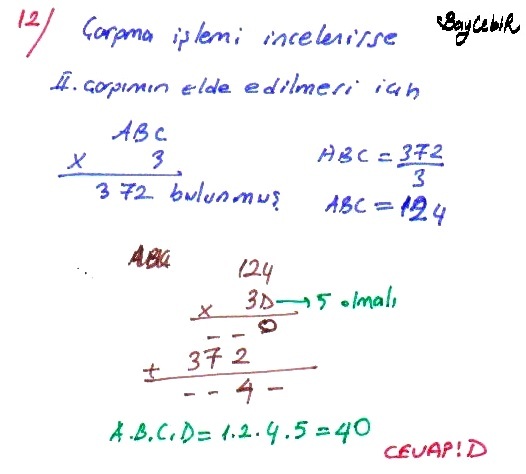 12) Çarpma işlemi incelenirse
BayCebiR
II. çarpımın elde edilmesi için
ABC
x 3
372 bulunmuş
ABC = 372/3
ABC = 124
124
x 3D → 5 olmalı
- - 0
+ 372
- - 4 -
A.B.C.D = 1.2.4.5 = 40
CEVAP! D